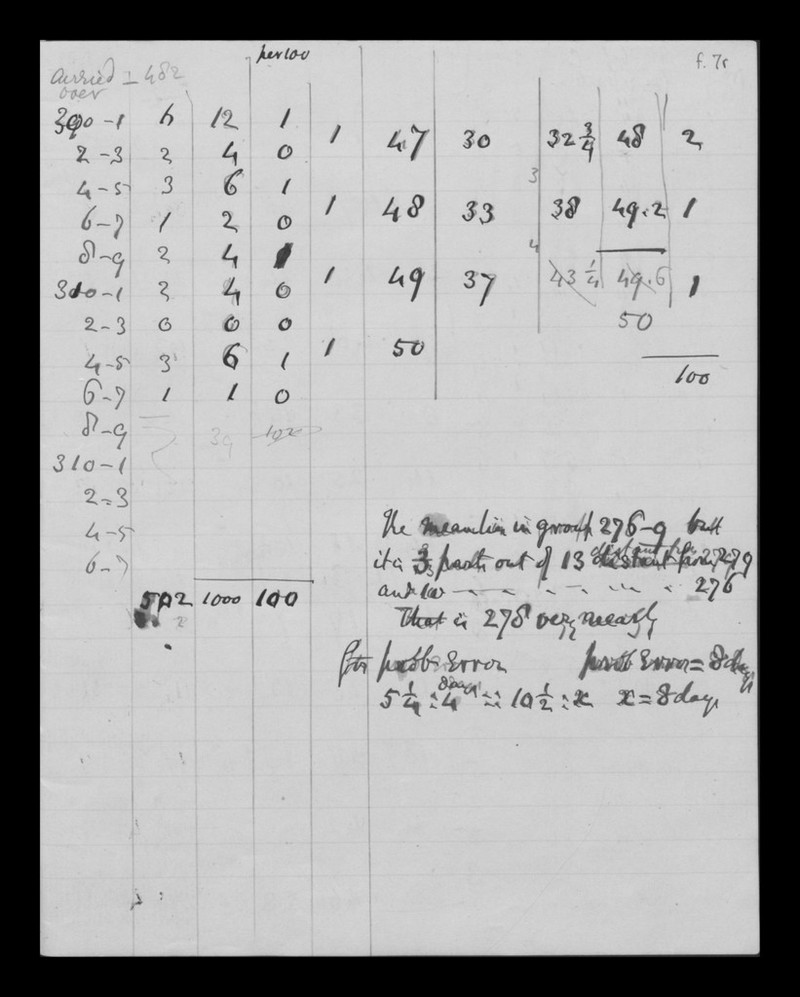 per 100
f. 7r
carried = 482
over
300-1 6 12 1
1 47 30 32 3/4 48 2
2-3 2 4 0
4-5 3 6 1
3
1 48 33 38 49.2 1
6-7 1 2 0
8-9 2 4 1
4
1 49 37 43 1/4 49.6 1
310-1 2 4 0
50
2-3 0 0 0
1 50
4-5 3 6 1
100
6-7 1 1 0
8-9 39 102
310-1
2-3
4-5
6-7
502 1000 100
2
The mean lies in group 276-9 but
it is 3 parts out of 13 distant from 279
and 10 - - - - - 276
That is 278 very nearly
for prob Error prob Error = 8 days
8 days
5 1/4 : 4 :: 10 1/2 : x x = 8 days